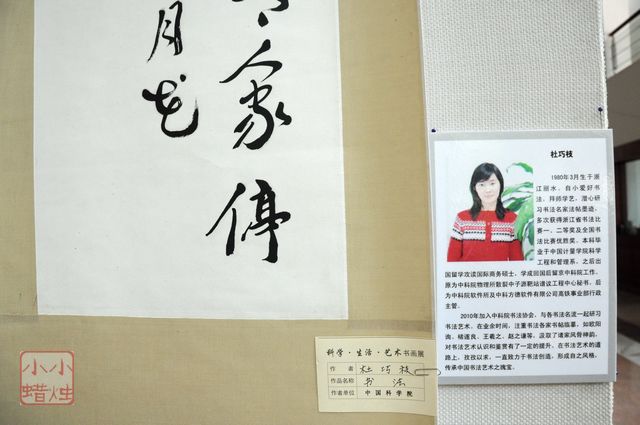 人家停
月老
杜巧枝
1980年3月生于浙
江丽水，自小爱好书
法，拜师学艺，潜心研
习书法名家法帖墨迹，
多次获得浙江省书法比
赛一、二等奖及全国书
法比赛优胜奖。本科毕
业于中国计量学院科学
工程和管理系，之后出
国留学攻读国际商务硕士，学成回国后留京中科院工作。
原为中科院物理所散裂中子源靶站谱仪工程中心秘书，后
为中科院软件所及中科方德软件有限公司高铁事业部行政
主管。
2010年加入中科院书法协会，与各书法名流一起研习
书法艺术，在业余时间，注重书法各家书帖临摹，如欧阳
询、褚遂良、王羲之、赵之谦等，汲取了诸家风骨神韵，
对书法艺术认识和鉴赏有了一定的提升。在书法艺术的道
路上，孜孜以求，一直致力于书法创造，形成自之风格，
传承中国书法艺术之瑰宝。
科学·生活·艺术书画展
作者 杜巧枝
作品名称 书法
作者单位 中国科学院
小小
蜡烛